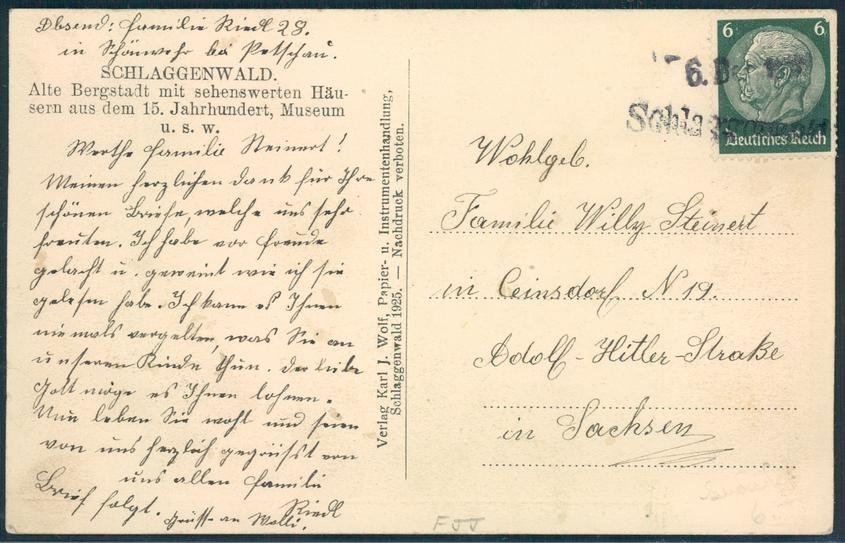 Absend: Familie Riedl 28.
in Schönwehr bei Petschau.
SCHLAGGENWALD.
Alte Bergstadt mit sehenswerten Häu-
sern aus dem 15. Jahrhundert, Museum
u. s. w.
Werthe Familie Steinert!
Meinen herzlichen dank für Ihre
schönen Briefe, welche uns sehr
freuten. Ich habe vor Freude
gelacht u. geweint wie ich sie
gelesen habe. Ich kann es Ihnen
niemals vergelten, was Sie an
unseren Kinde thun. der liebe
Gott möge es Ihnen lohnen.
Nun leben Sie wohl und seien
von uns herzlich gegrüsst von
uns allen Familie
Riedl
Brief folgt.
Grüsse an Walli.
Verlag Karl J. Wolf, Papier- u. Instrumentenhandlung,
Schlaggenwald 1925. — Nachdruck verboten.
6 6
Deutsches Reich
6. D
Schlaggenwald
Wohlgeb.
Familie Willy Steinert
in Ceinsdorf N 19.
Adolf-Hitler-Straße
in Sachsen
FJJ